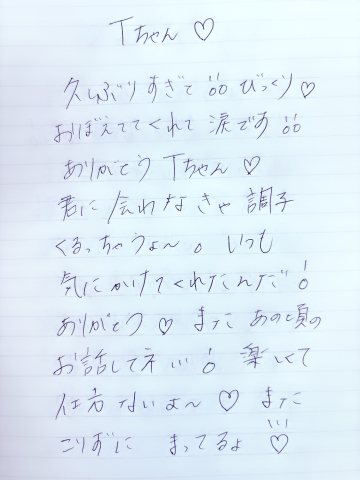 Tちゃん♡
久しぶりすぎて!!びっくり♡
おぼえててくれて涙です!!
ありがとうTちゃん♡
君に会わなきゃ調子
くるっちゃうよ〜。いつも
気にかけてくれたんだ!
ありがとう♡またあの頃の
お話してネ…!楽しくて
仕方ないよ〜♡また
こりずにまってるよ♡